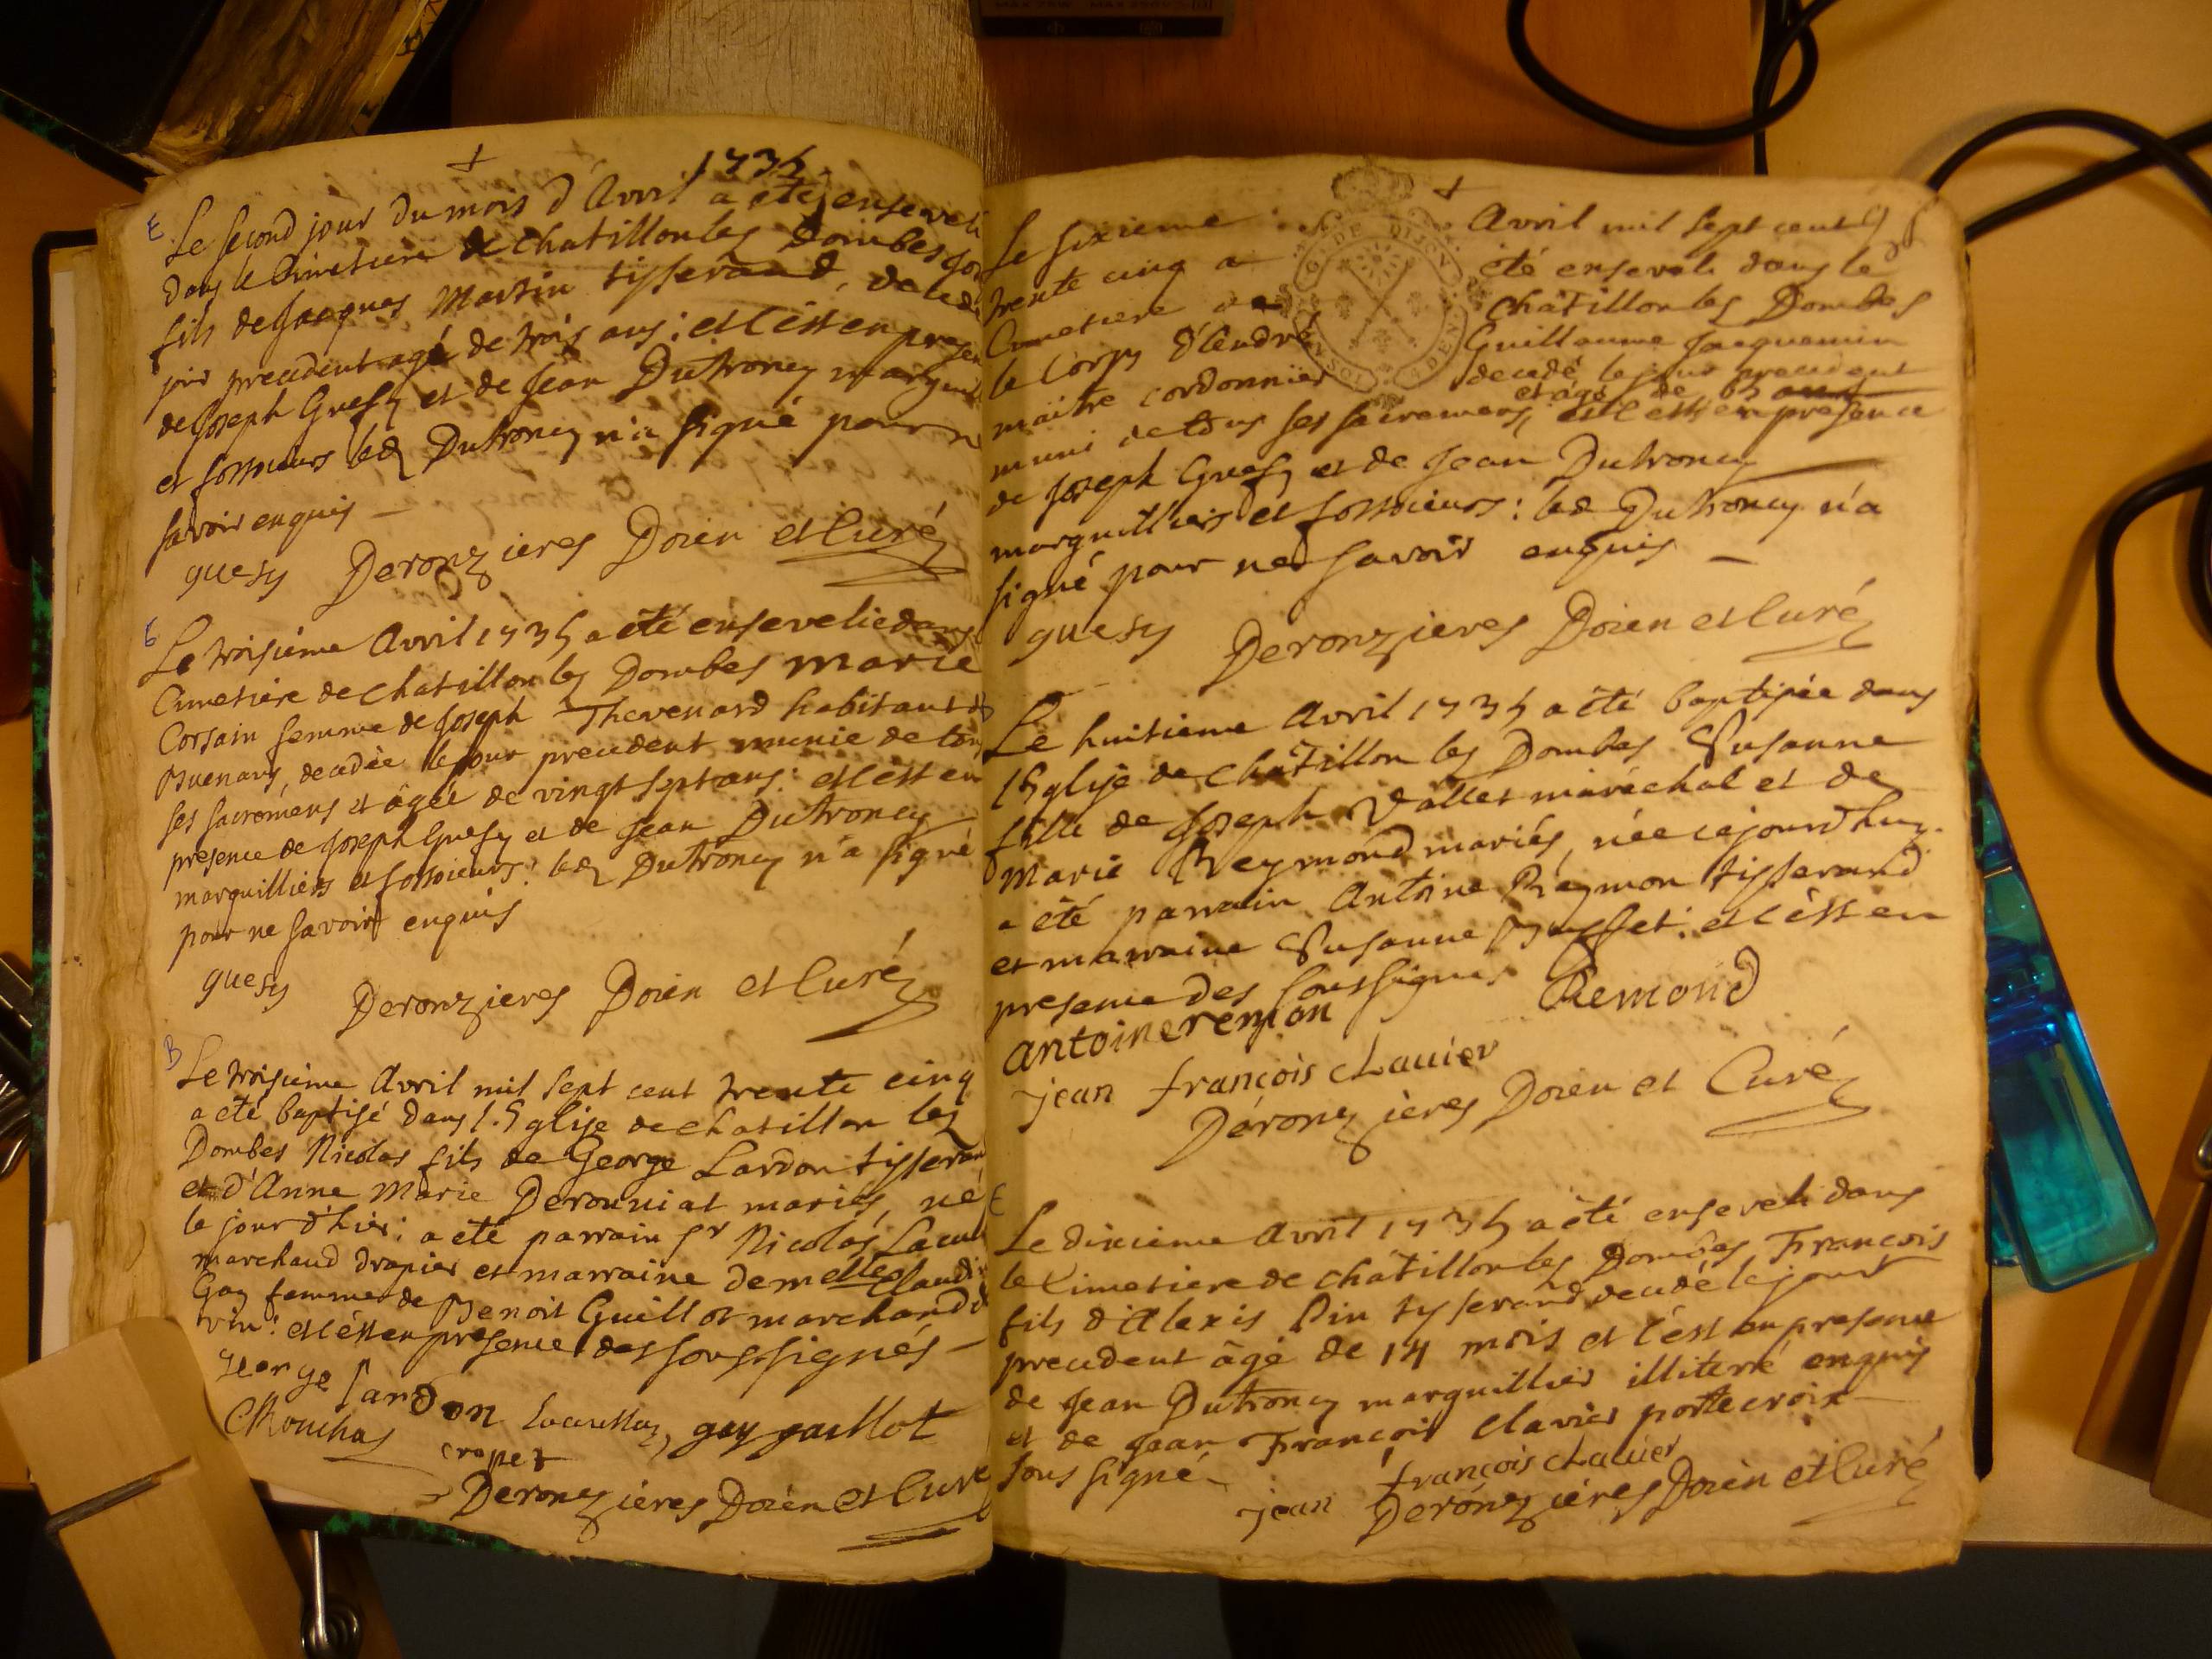 1735
E
Le second jour du mois d'Avril a été enseveli
dans le Cimetiere de chatillon les Dombes
fils de Jacques Martin tisserand, decede
jour precedent agé de trois ans: et c'est en presen
de Joseph Guesy et de Jean Dutroncy marguil
et fossoieurs led Dutroncy n'a signé pour n
savoir enquis
guesy Deronzieres Doien et Curé
Le troisième Avril 1735 a été ensevelie dans
Cimetière de chatillon les Dombes marie
Corsain femme de Joseph Thevenard habitant de
Buenans, decedée le jour precedent munie de tou
ses sacremens et âgée de vingt sept ans: et c'est en
presence de Joseph Guesy et de Jean Dutroncy
marguilliers et fossoieurs: led Dutroncy n'a signé
pour ne savoir enquis
guesy Deronzieres Doien et Curé
B
Le troisième Avril mil sept cent trente cinq
a été baptisé dans l'Eglise de chatillon les
Dombes Nicolas fils de George Lardon tisseran
et d'Anne Marie Derouniat mariés, né
le jour d'hier: a été parrain sr Nicolas
marchand drapier et marraine demelle
Gay femme de Benoit Guillot marchand d
vin: et c'est en presence des soussignés
george lardon gay guillot
cropet
Deronzieres Doien et Curé
Le sixieme Avril mil sept cent
trente cinq a été enseveli dans le
Cimetiere de châtillon les Dombes
le corps d'André Guillaume Jacquemin
maitre cordonnier decedé le jour precedent
et agé de 63 ans
muni de tous ses sacremens, et c'est en presence
de Joseph Guesy et de Jean Dutroncy
marguilliers et fossoieurs: led Dutroncy n'a
signé pour ne savoir enquis
G. DE DIJON
guesy Deronzieres Doien et Curé
Le huitieme Avril 1735 a été baptisée dans
l'Eglise de châtillon les Dombes Susanne
fille de Joseph Vallet maréchal et de
Marie Reymond mariés, née cejourdhuy.
a été parrain Antoine Reymon tisserand
et marraine Susanne Buffet: et c'est en
presence des soussignes
antoine remon Remond
jean françois clavier
Déronzières Doien et Curé
E
Le dixième Avril 1735 a été enseveli dans
le Cimetiere de châtillon les Dombes François
fils d'Alexis Pin tysserand, decedé le jour
precedent âgé de 14 mois et c'est en presence
de Jean Dutroncy marguillier illiteré enquis
et de Jean François Clavier porte croix
soussigné
jean françois clavier
Deronzières Doien et Curé